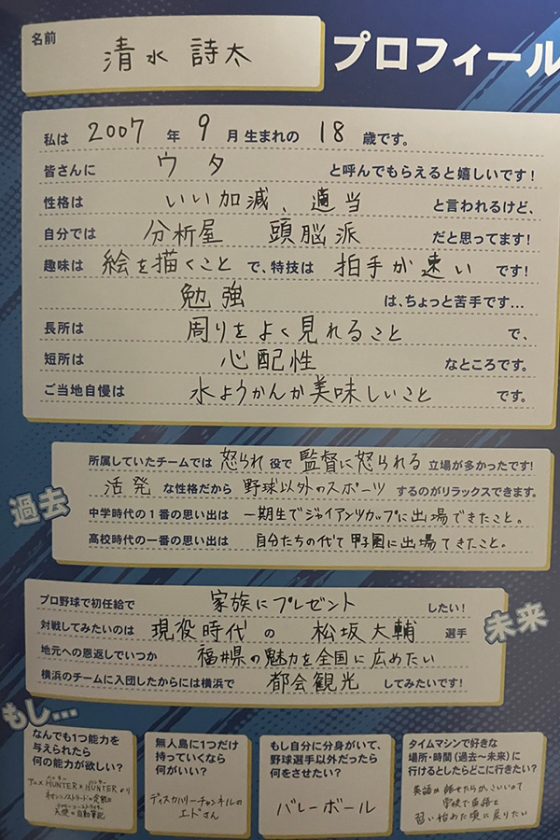 名前
清水 詩太
プロフィール
私は 2007 年 9 月生まれの 18 歳です。
皆さんに ウタ と呼んでもらえると嬉しいです!
性格は いい加減、適当 と言われるけど、
自分では 分析屋 頭脳派 だと思ってます!
趣味は 絵を描くこと で、特技は 拍手が速い です!
勉強 は、ちょっと苦手です…
長所は 周りをよく見れること で、
短所は 心配性 なところです。
ご当地自慢は 水ようかんが美味しいこと です。
過去
所属していたチームでは 怒られ 役で 監督に怒られる 立場が多かったです!
活発 な性格だから 野球以外のスポーツ するのがリラックスできます。
中学時代の1番の思い出は 一期生でジャイアンツカップに出場できたこと。
高校時代の一番の思い出は 自分たちの代で甲子園に出場できたこと。
未来
プロ野球で初任給で 家族にプレゼント したい!
対戦してみたいのは 現役時代 の 松坂大輔 選手
地元への恩返しでいつか 福井県の魅力を全国に広めたい
横浜のチームに入団したからには横浜で 都会観光 してみたいです!
もし…
なんでも1つ能力を
与えられたら
何の能力が欲しい?
アニメHUNTER×HUNTERのり
天使の自動筆記
無人島に1つだけ
持っていくなら
何がいい?
ディスカバリーチャンネルの
エドさん
もし自分に分身がいて、
野球選手以外だったら
何をさせたい?
バレーボール
タイムマシンで好きな
場所・時間(過去〜未来)に
行けるとしたらどこに行きたい?
英語が話せたらかっこいいので
学校で英語を
習い始めた頃に戻りたい